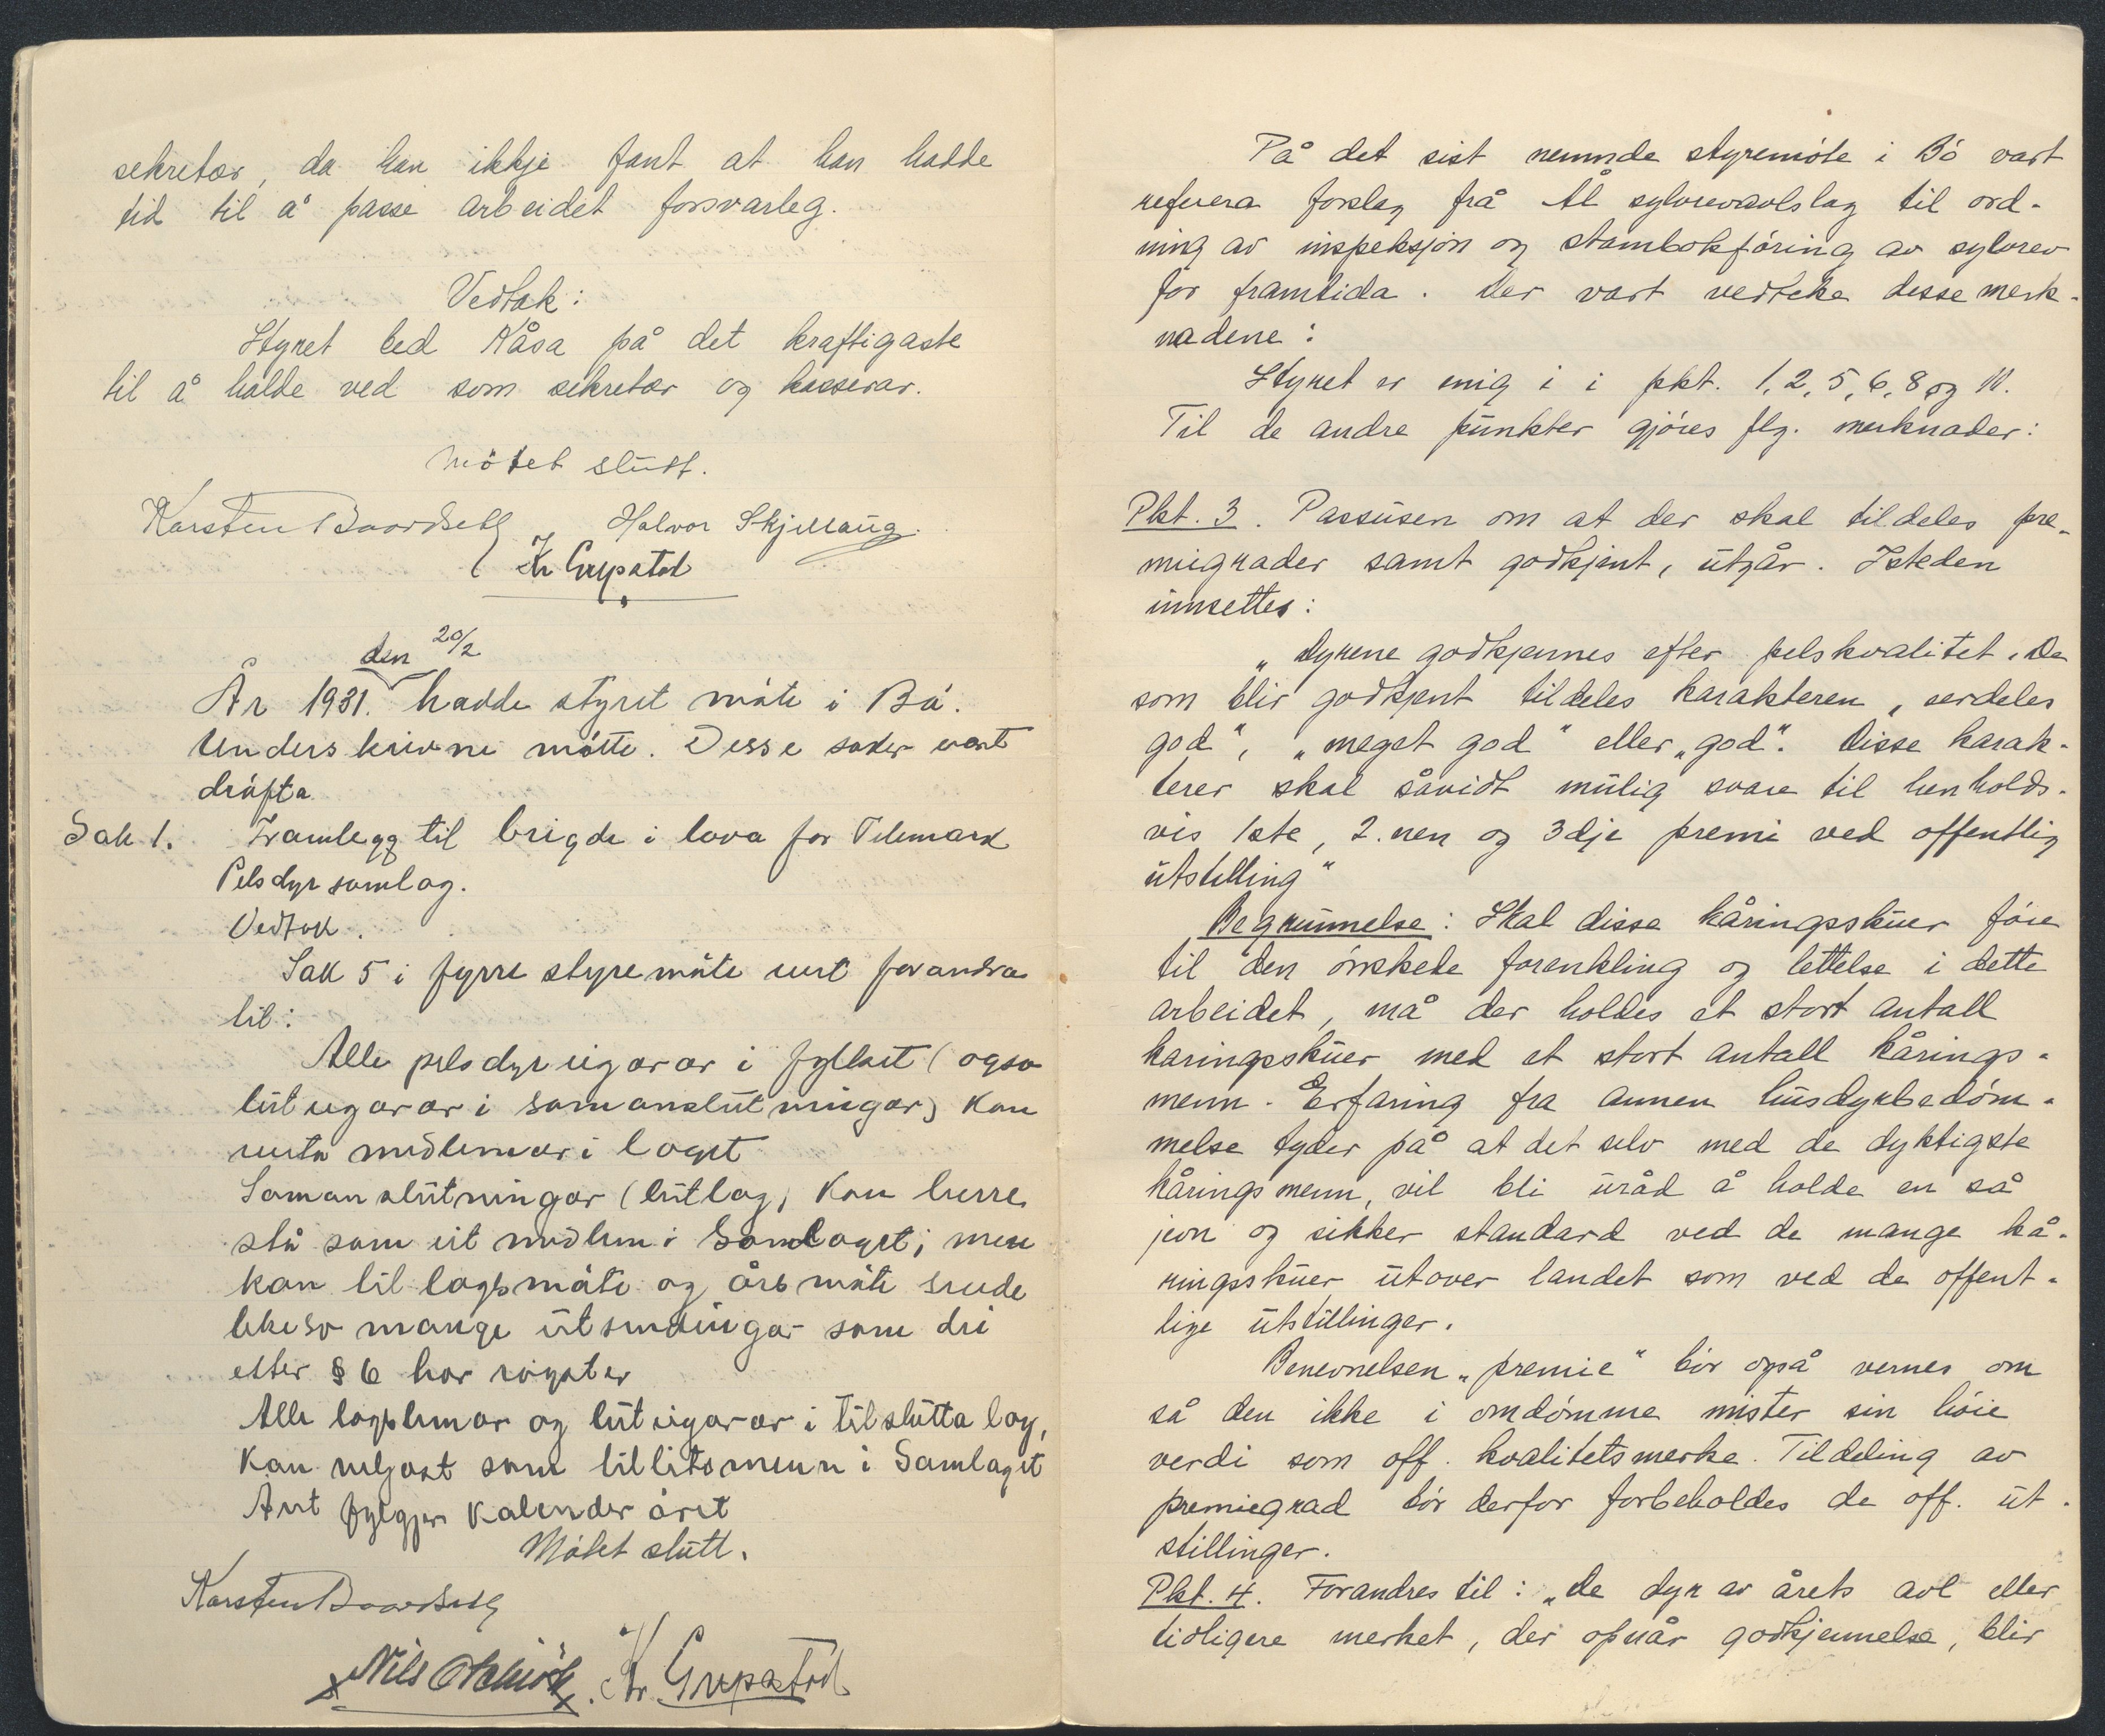 sekretær, da han ikkje fant at han hadde
tid til å passe arbeidet forsvarleg.
Vedtak:
Styret bed Kåsa på det kraftigaste
til å halde ved som sekretær og kasserar.
Møtet slutt.
Karsten Halvor Skjellaug.
Kr Grepstad
den 20/2
År 1931. hadde styret møte i Bø.
Underskrivne møtte. Desse saker vart
drøfta
Sak 1. Framlegg til brigde i lova for Telemark
Pelsdyrsamlag.
Vedtak.
Sak 5 i fyrre styremøte vert forandra
til:
Alle pelsdyreigarar i fylket (ogso
luteigarar i samanslutningar) kan
verta medlemar i laget
Samanslutningar (lutlag) kan berre
stå som eit medlem i Samlaget; men
kan til lagsmøte og årsmøte sende
likeso mange utsendingar som dei
etter § 6 har røyster
Alle lagslemar og luteigarar i tilslutta lag,
kan veljast som tillitsmenn i Samlaget
Året fylgjer kalenderåret
Møtet slutt.
Karsten
Nils Kr. Grepstad
På det sist nemnde styremøte i Bø vart
referera forslag frå Ål sylvrevavlslag til ord-
ning av inspeksjon og stambokføring av sylvrev
for framtida. Der vart vedteke desse merk-
nadene:
Styret er enig i i pkt. 1, 2, 5, 6, 8 og 10.
Til de andre punkter gjøres flg. merknader:
Pkt. 3. Passusen om at der skal tildeles pre-
miegrader samt godkjent, utgår. Isteden
innsettes:
„Dyrene godkjennes efter pelskvalitet. De
som blir godkjent tildeles karakteren „serdeles
god", „meget god" eller „god". Disse karak-
terer skal såvidt mulig svare til henholds-
vis 1ste, 2.nen og 3dje premi ved offentlig
utstilling"
Begrunnelse: Skal disse kåringsskuer føre
til den ønskede forenkling og lettelse i dette
arbeidet, må der holdes et stort antall
karingsskuer med et stort antall kårings-
menn. Erfaring fra annen husdyrbedøm-
melse tyder på at det selv med de dyktigste
kåringsmenn, vil bli uråd å holde en så
jevn og sikker standard ved de mange kå-
ringsskuer utover landet som ved de offent-
lige utstillinger.
Benevnelsen „premie" bør også vernes om
så den ikke i omdømme mister sin høie
verdi som off. kvalitetsmerke. Tildeling av
premiegrad bør derfor forbeholdes de off. ut-
stillinger.
Pkt. 4. Forandres til: „de dyr av årets avl eller
tidligere merket, der opnår godkjennelse, blir